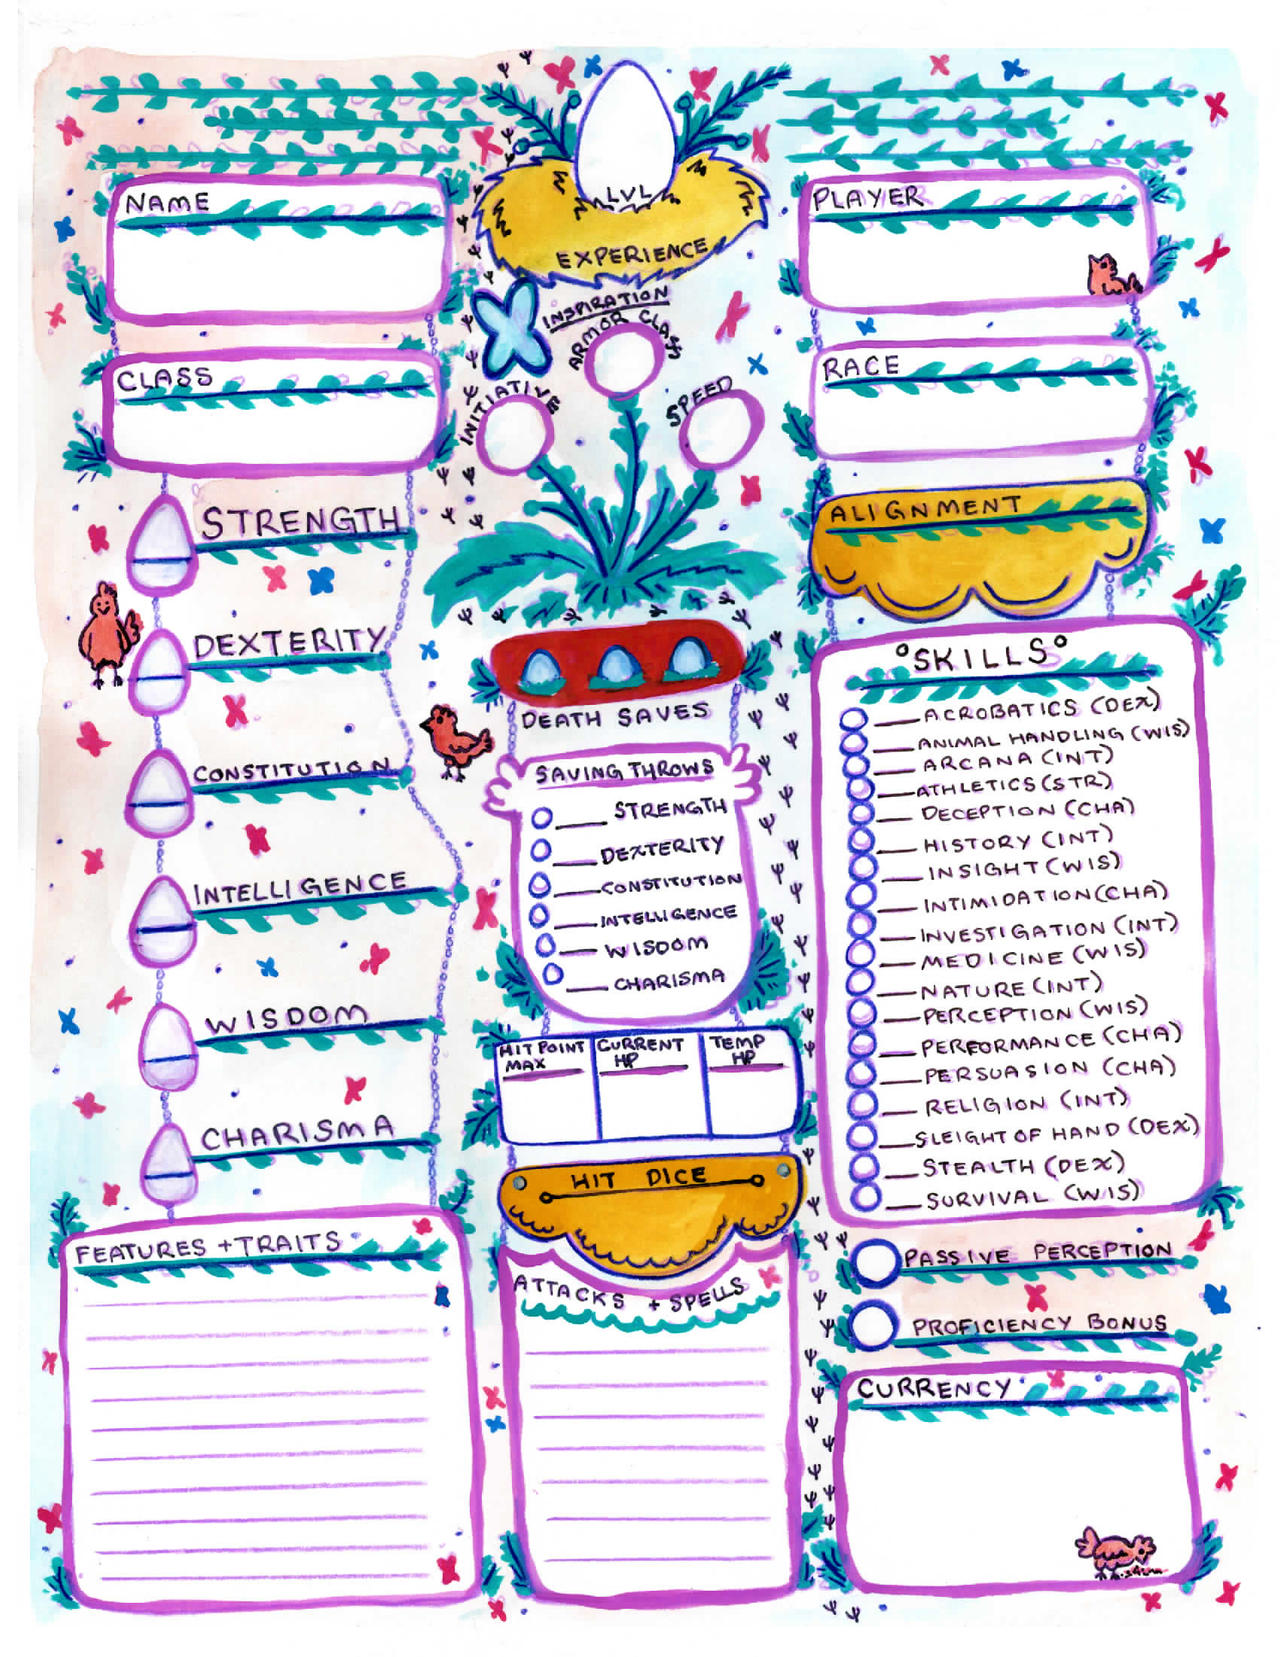 NAME
LVL
EXPERIENCE
PLAYER
INSPIRATION
ARMOR CLASS
INITIATIVE
SPEED
CLASS
RACE
ALIGNMENT
STRENGTH
DEXTERITY
CONSTITUTION
INTELLIGENCE
WISDOM
CHARISMA
DEATH SAVES
SAVING THROWS
STRENGTH
DEXTERITY
CONSTITUTION
INTELLIGENCE
WISDOM
CHARISMA
HIT POINT MAX
CURRENT HP
TEMP HP
HIT DICE
°SKILLS°
ACROBATICS (DEX)
ANIMAL HANDLING (WIS)
ARCANA (INT)
ATHLETICS (STR)
DECEPTION (CHA)
HISTORY (INT)
INSIGHT (WIS)
INTIMIDATION (CHA)
INVESTIGATION (INT)
MEDICINE (WIS)
NATURE (INT)
PERCEPTION (WIS)
PERFORMANCE (CHA)
PERSUASION (CHA)
RELIGION (INT)
SLEIGHT OF HAND (DEX)
STEALTH (DEX)
SURVIVAL (WIS)
PASSIVE PERCEPTION
PROFICIENCY BONUS
FEATURES + TRAITS
ATTACKS + SPELLS
CURRENCY